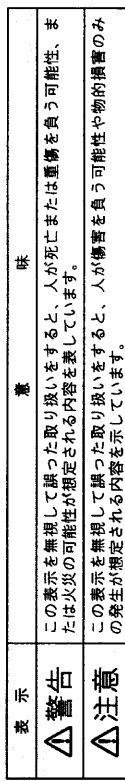 表示 意味
⚠警告 この表示を無視して誤った取り扱いをすると、人が死亡または重傷を負う可能性、ま
たは火災の可能性が想定される内容を表しています。
⚠注意 この表示を無視して誤った取り扱いをすると、人が傷害を負う可能性や物的損害のみ
の発生が想定される内容を示しています。